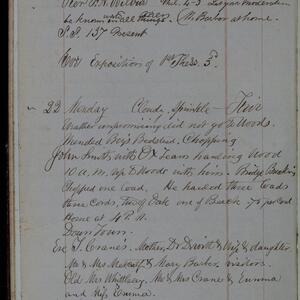 Phil. 4-5 Let your moderation
be known in all things. Mr Barbor at home.
S.S. 137 Present
Eve Exposition of 1st Thess. 5th
22 Monday Cloudy, Sprinkle - Fair
Weather unpromising did not go to Woods.
Mended Boy's Bedstead, Chopping
John Smith with Ox Team hauling Wood
10 A.M. up to Woods with him. Bridge Breaking
Chopped one load. He hauled three loads
three Cords, Forty Bark one of Bark .75 per Cord
Home at 4 P.M.
Down Town.
Eve. T. Crane's, Mother, Dr Dewitt & Wife & daughter
Mr & Mrs Metcalf & Mary Barber visitors.
Old Mrs Whittlesey, Mr & Mrs Crane & Emma
and Wife Emma.